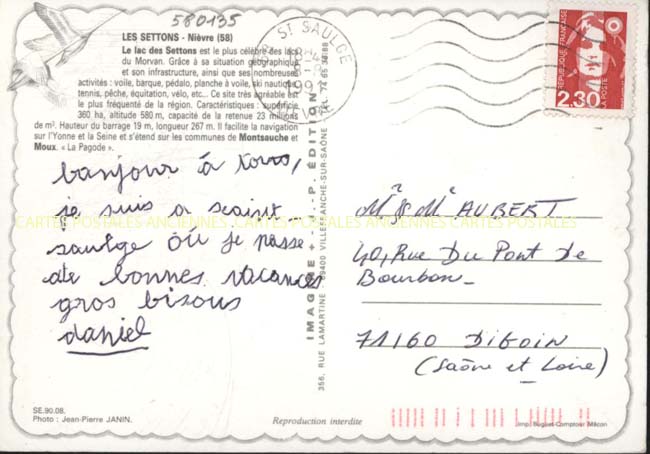 580135
LES SETTONS - Nièvre (58)
Le lac des Settons est le plus célèbre des lacs
du Morvan. Grâce à sa situation géographique
et son infrastructure, ainsi que ses nombreuses
activités : voile, barque, pédalo, planche à voile, ski nautique,
tennis, pêche, équitation, vélo, etc... Ce site très agréable est
le plus fréquenté de la région. Caractéristiques : superficie
360 ha, altitude 580 m, capacité de retenue 23 millions
de m³. Hauteur du barrage 19 m, longueur 267 m. Il facilite la navigation
sur l'Yonne et la Seine et s'étend sur les communes de Montsauche et
Moux. « La Pagode ».
banjour à tous,
je suis a seaint
saulge où je passe
de bonnes vacances
gros bisous
daniel
SE.90.08.
Photo : Jean-Pierre JANIN.
IMAGINE + - I.-P. ÉDITION
356, RUE LAMARTINE - 69400 VILLEFRANCHE-SUR-SAÔNE TÉL. 74 65 38 88
ST SAULGE
RÉPUBLIQUE FRANÇAISE
2,30
LA POSTE
Mr & Me AUBERT
40, Rue Du Pont De
Bourbon
71160 Digoin
(Saône et Loire)
Reproduction interdite
Imp. Buguet-Comptour Mâcon
CARTES POSTALES ANCIENNES CARTES POSTALES ANCIENNES CARTES POSTALES